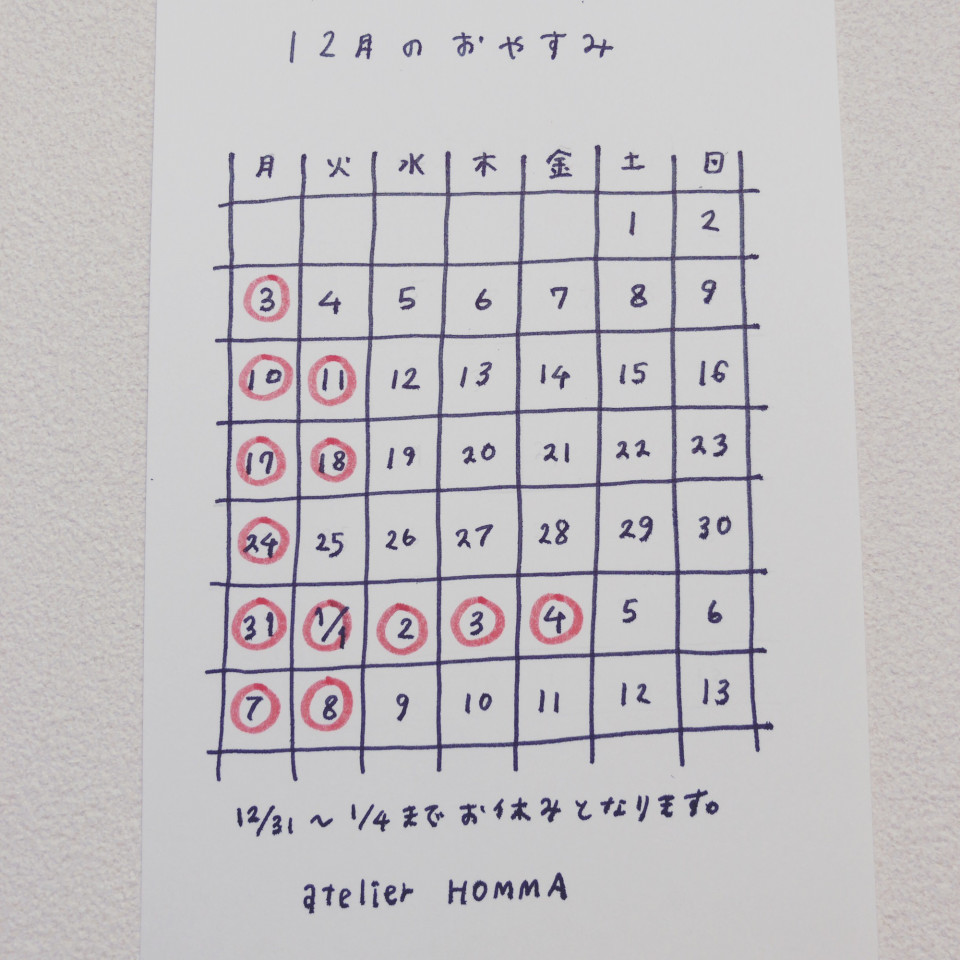 12月のおやすみ
月 火 水 木 金 土 日
1 2
3 4 5 6 7 8 9
10 11 12 13 14 15 16
17 18 19 20 21 22 23
24 25 26 27 28 29 30
31 1/1 2 3 4 5 6
7 8 9 10 11 12 13
12/31〜1/4までお休みとなります。
atelier HOMMA